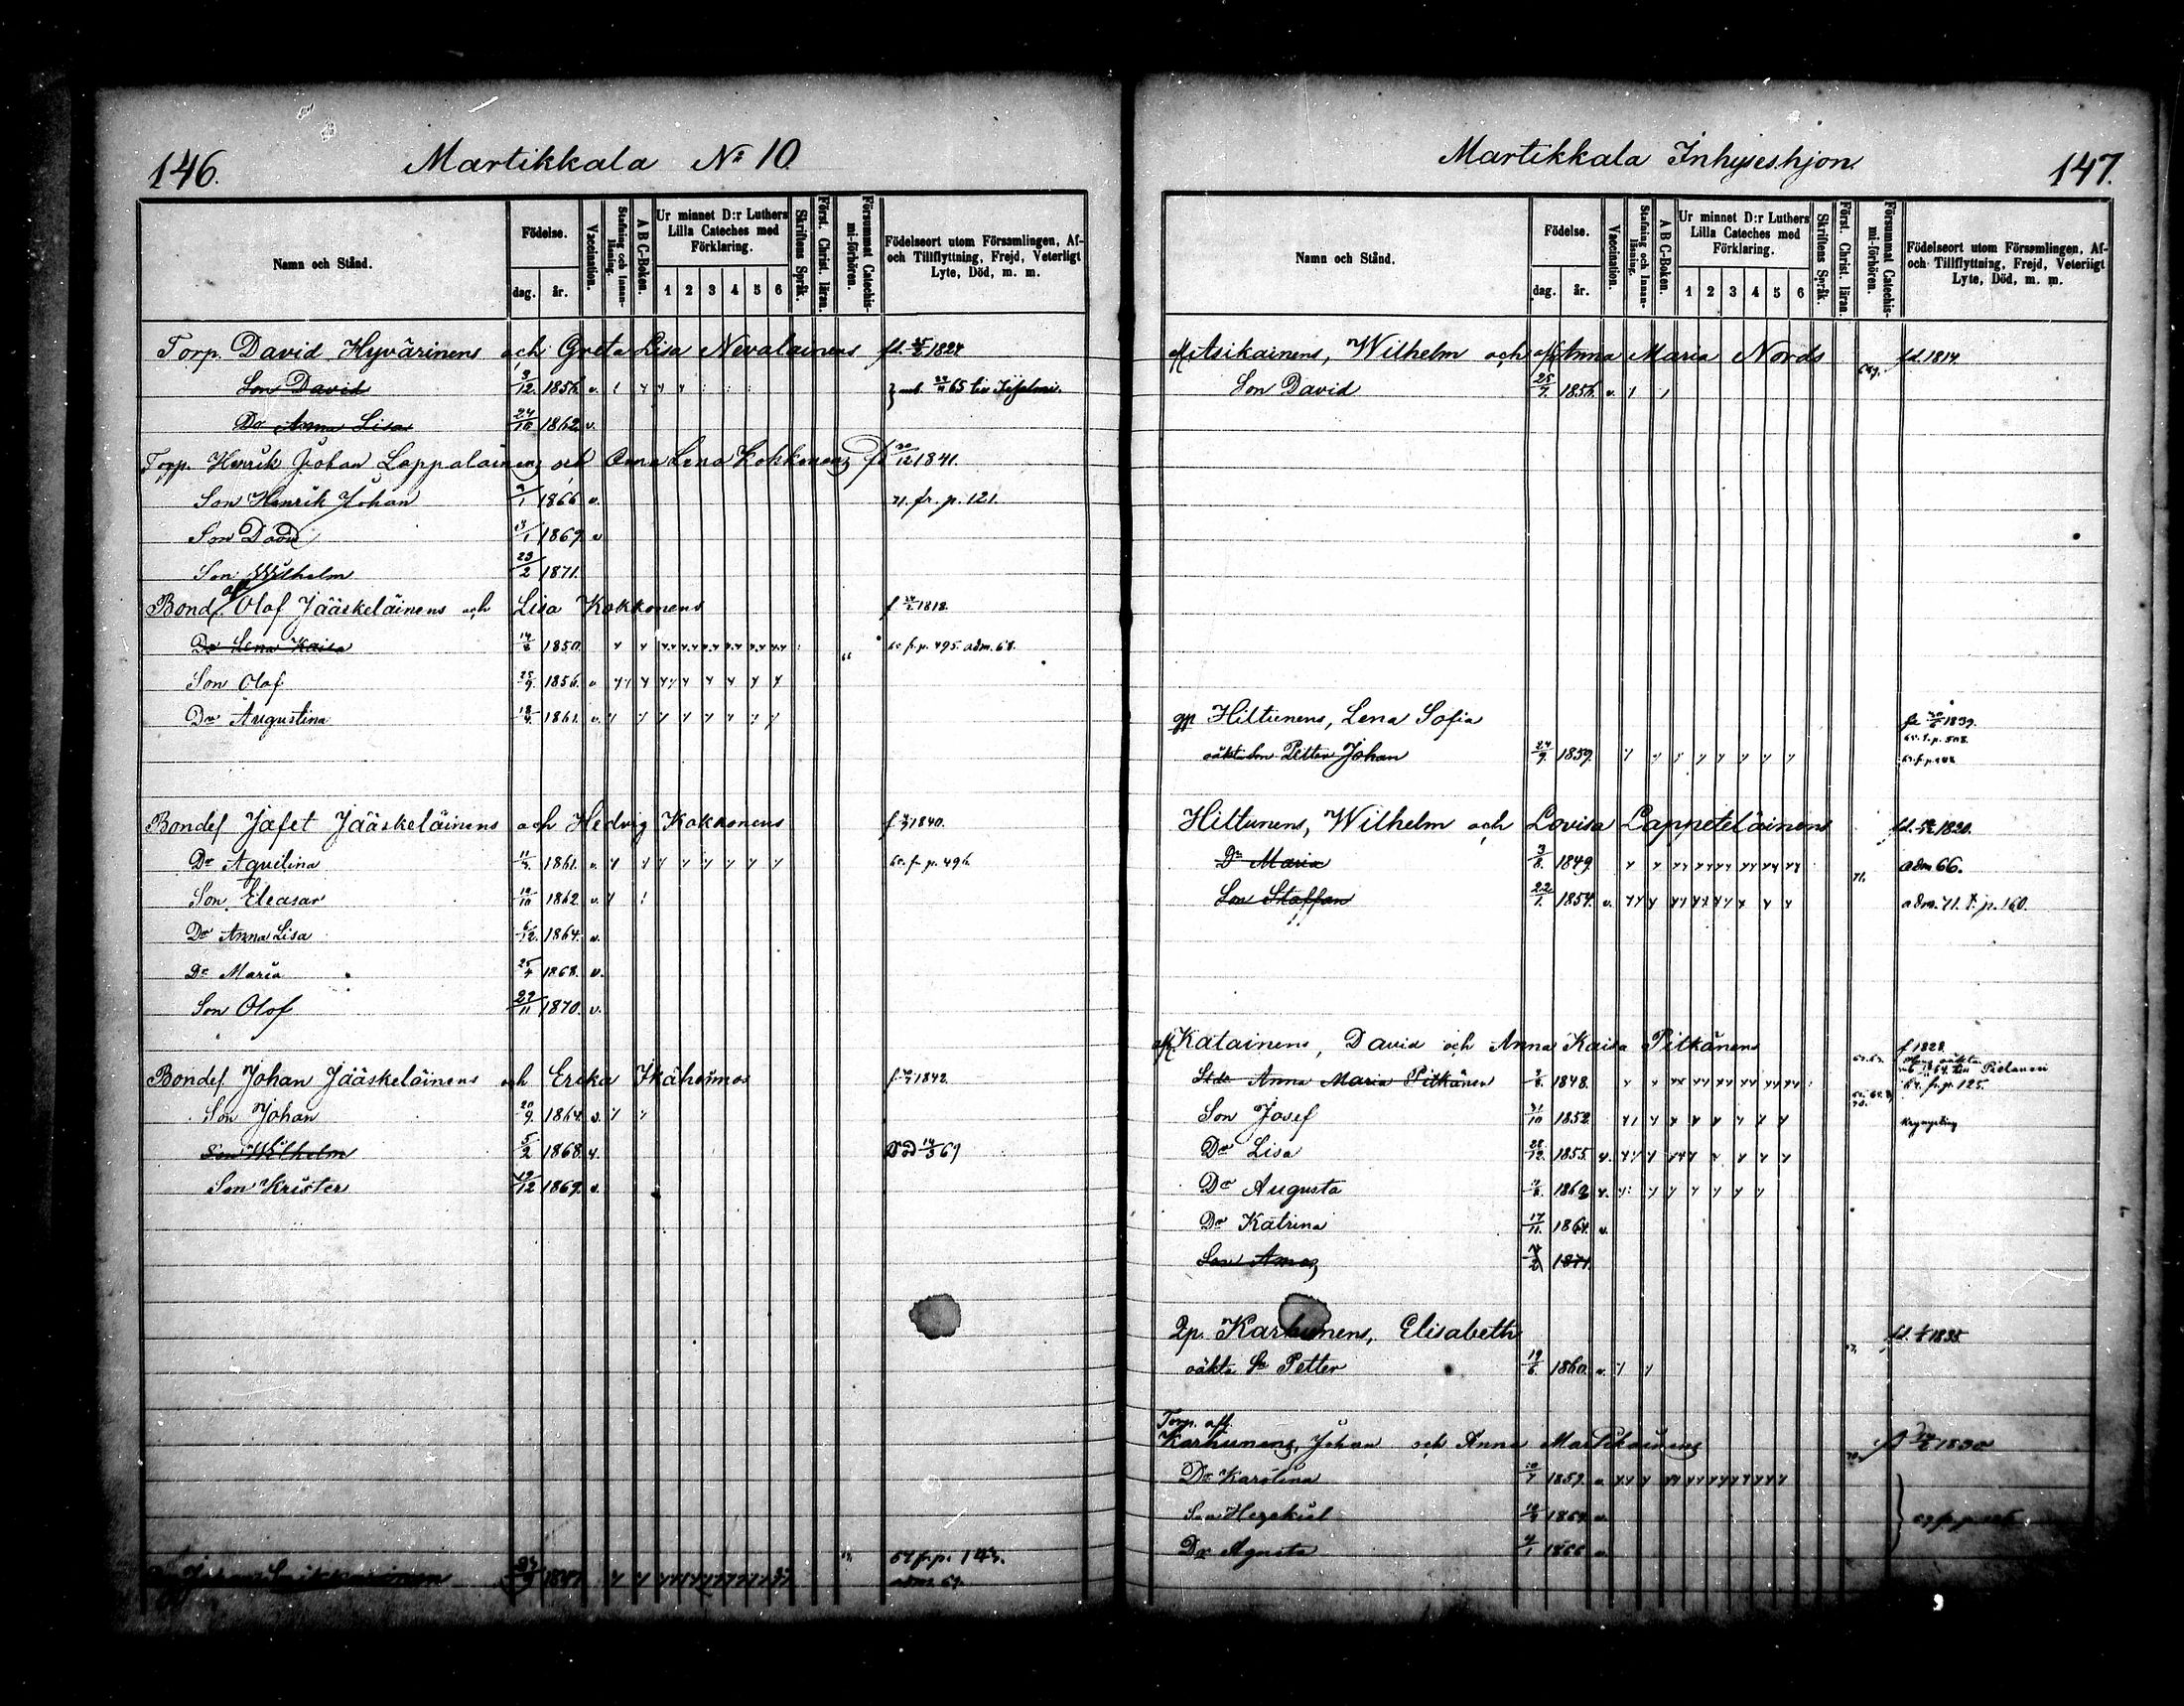 146.
Martikkala № 10.
Namn och Stånd.
Födelse.
dag. år.
Vaccination.
Stafning och Innanläsning.
A B C-Boken.
Ur minnet D:r Luthers Lilla Cateches med Förklaring.
1 2 3 4 5 6
Skriftens Språk.
Först. Christ. läran.
Försummat Catechismi-förhören.
Födelseort utom Församlingen, Af- och Tillflyttning, Frejd, Veterligt Lyte, Död, m. m.
Torp. David Hyvärinens och Greta Lisa Nevalainens fd. 1824
Son David 3/12 1856 v.
Dr Anna Lisa 24/10 1862 v.
Torp. Henrik Johan Lappalainens och Anna Lena Kokkonens 1841.
Son Henrik Johan 1866 v. 71. fr. p. 121.
Son David 1869 v
Son Wilhelm 23/2 1871.
Bond Olof Jääskeläinens och Lisa Kokkonens f 1818.
Dr Lena Kaisa 1850 fr. p. 495. adm. 68.
Son Olof 25/9 1856. v
Dr Augustina 18/4 1861. v.
Bondes Jafet Jääskeläinens och Hedvig Kokkonens f 1840.
Dr Aqvilina 11/4 1861. v. fr. p. 496.
Son Eleasar 10/10 1862 v.
Dr Anna Lisa 6/12 1864. v.
Dr Maria 25/4 1868. v.
Son Olof 27/11 1870. v.
Bondes Johan Jääskeläinens och Erika Ikäheimos f 1842.
Son Johan 20/9 1864. v.
Son Wilhelm 5/2 1868. v. Död 14/3 69
Son Krister 19/12 1869. v.
69 fr. p. 143.
adm 69.
Martikkala Inhyseshjon.
147.
Namn och Stånd.
Födelse.
dag. år.
Vaccination.
Stafning och Innanläsning.
A B C-Boken.
Ur minnet D:r Luthers Lilla Cateches med Förklaring.
1 2 3 4 5 6
Skriftens Språk.
Först. Christ. läran.
Försummat Catechismi-förhören.
Födelseort utom Församlingen, Af- och Tillflyttning, Frejd, Veterligt Lyte, Död, m. m.
Itsikainens, Wilhelm och Anna Maria Nords fd. 1814
Son David 25/7 1856. v.
Hiltunens, Lena Sofia 1839.
oäkta son Petter Johan 24/9 1859.
Hiltunens, Wilhelm och Lovisa Lappeteläinens fd. 1820.
Dr Maria 3/8 1849 adm 66.
Son Staffan 22/1 1854. v. adm. 71. p. 160.
Katainens, David och Anna Kaisa Pitkänens f 1828.
Anna Maria Pitkänen 1848. 64. fr. p. 125.
Son Josef 31/10 1852
Dr Lisa 28/12 1855. v.
Dr Augusta 1862 v.
Dr Katrina 17/11 1864. v.
Son Amos 1871.
Karhunens, Elisabeth fd. 1835
oäkta Sn Petter 19/6 1860. v.
Torp. aft.
Karhunens, Johan och Anna Martikainens 1830
Dr Karolina 1859. v
Son Hezekiel 1864 v.
Dr Agusta 1866 v.